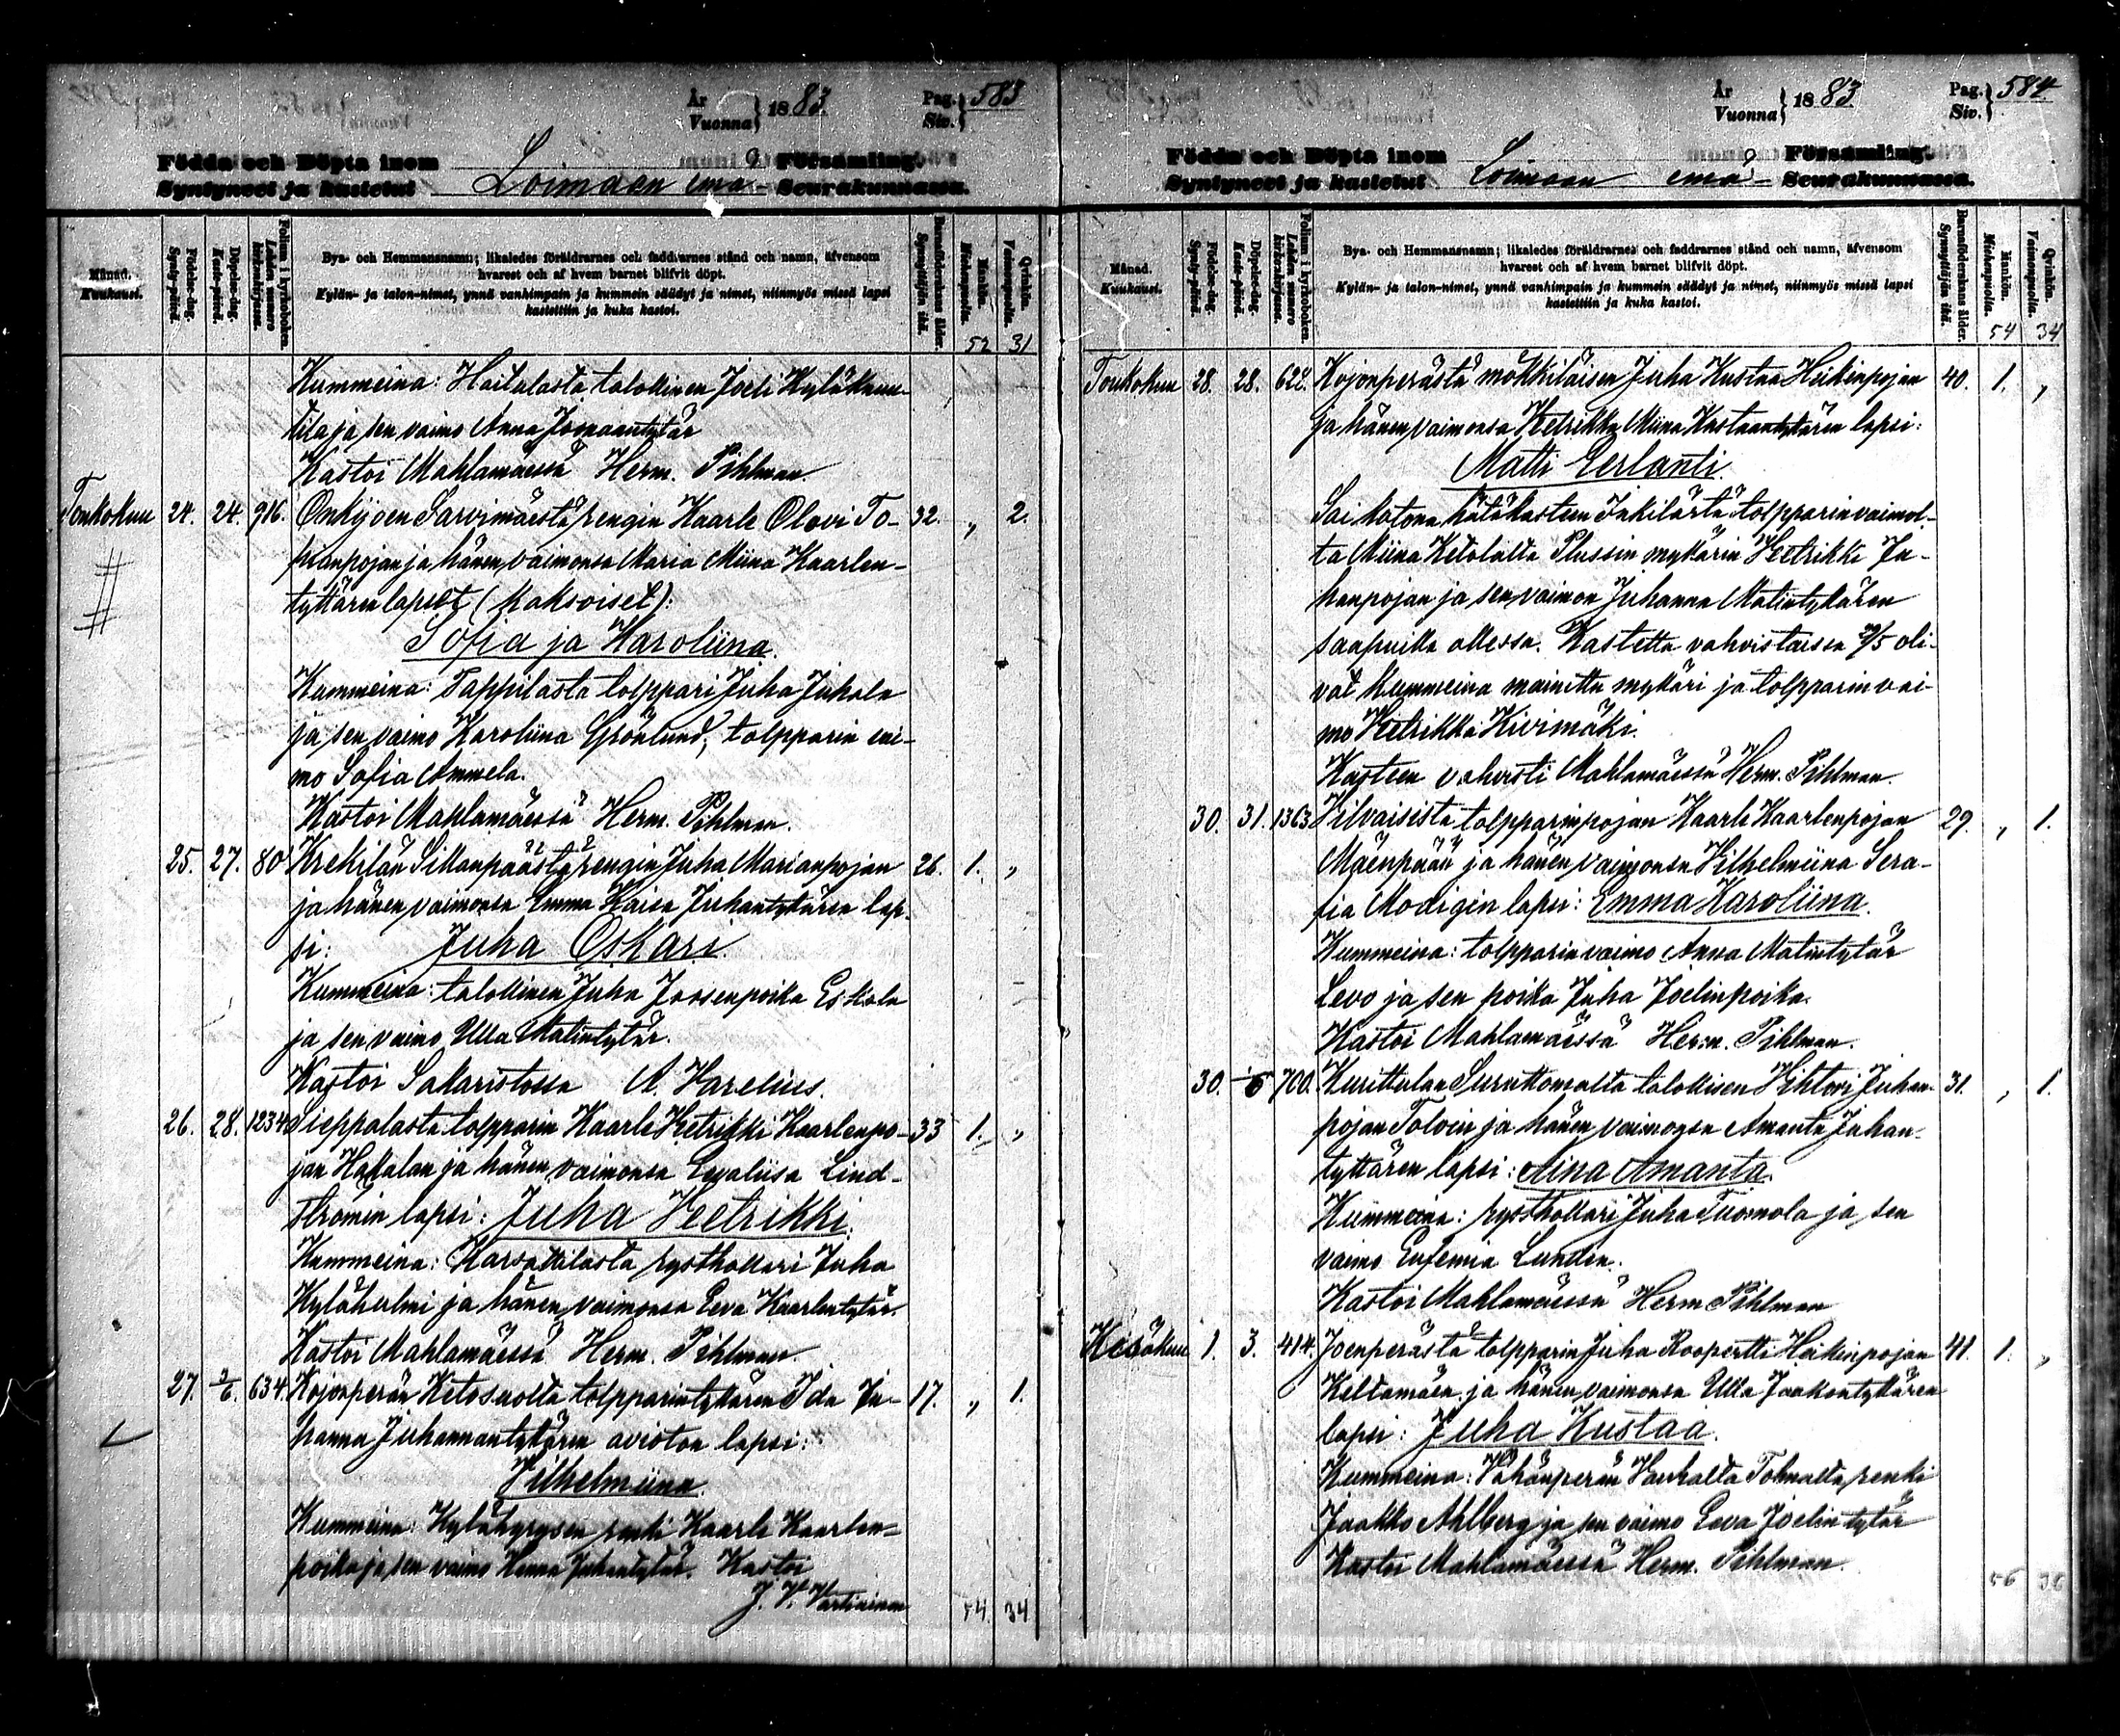 År
Vuonna } 1883. Pag.
Siv. } 583
Födda och Döpta inom Församling.
Syntyneet ja kastetut Loimaan emä- Seurakunnassa.
Månad.
Kuukausi.
Födelse-dag.
Synty-päivä.
Döpelse-dag.
Kaste-päivä.
Folium i kyrkoboken.
Lehden numero kirkonkirjassa.
Bya- och Hemmansnamn; likaledes föräldrarnes och faddrarnes stånd och namn, äfvensom
hvarest och af hvem barnet blifvit döpt.
Kylän- ja talon-nimet, ynnä vanhimpain ja kummein säädyt ja nimet, niinmyös missä lapsi
kastettiin ja kuka kastoi.
Barnföderskans ålder.
Synnyttäjän ikä.
Mankön.
Miehenpuolia.
Qvinkön.
Vaimonpuolia.
52 31
Kummeina: Haitalasta talollinen Joeli Kyläkaut-
tila ja sen vaimo Anna Joonaantytär
Kastoi Mahlamäessä Herm. Pihlman.
Toukokuu 24. 24. 916. Onkijoen Sarvimäestä rengin Kaarle Olovi To- 32. „ 2.
hanpojan ja hänen vaimonsa Maria Miina Kaarlen-
tyttären lapset (kaksoiset):
Sofia ja Karoliina.
Kummeina: Tappilasta tolppari Juha Juhala
ja sen vaimo Karoliina Grönlund, tolpparin vai-
mo Sofia Ammela.
Kastoi Mahlamäessä Herm. Pihlman.
25. 27. 80 Krekilän Sillanpäästä rengin Juha Marianpojan 26. 1. „
ja hänen vaimonsa Emma Kaisa Juhantyttären lap-
si: Juha Oskari.
Kummeina: talollinen Juha Joosenpoika Eskola
ja sen vaimo Ulla Matintytär.
Kastoi Sakaristossa A. Varelius.
26. 28. 1234 Sieppalasta tolpparin Kaarle Heetrikki Kaarlenpo- 33 1. „
jan Hakalan ja hänen vaimonsa Evaliisa Lind-
strömin lapsi: Juha Heetrikki.
Kummeina: Karsattilasta rysthollari Juha
Kylähelmi ja hänen vaimonsa Eeva Kaarlentytär.
Kastoi Mahlamäessä Herm. Pihlman.
27. 2/6. 634. Kojonperän Ketosuolta tolpparintyttären Ida Ju- 17. „ 1.
hanna Juhannantyttären avioton lapsi:
Vilhelmiina.
Kummeina: renki Kaarle Kaarlen-
poika ja sen vaimo Henna Juhantytär. Kastoi
J. V. Vartiainen
54. 34
År
Vuonna } 1883 Pag.
Siv. } 584
Födda och Döpta inom Församling.
Syntyneet ja kastetut Loimaan emä- Seurakunnassa.
Månad.
Kuukausi.
Födelse-dag.
Synty-päivä.
Döpelse-dag.
Kaste-päivä.
Folium i kyrkoboken.
Lehden numero kirkonkirjassa.
Bya- och Hemmansnamn; likaledes föräldrarnes och faddrarnes stånd och namn, äfvensom
hvarest och af hvem barnet blifvit döpt.
Kylän- ja talon-nimet, ynnä vanhimpain ja kummein säädyt ja nimet, niinmyös missä lapsi
kastettiin ja kuka kastoi.
Barnföderskans ålder.
Synnyttäjän ikä.
Mankön.
Miehenpuolia.
Qvinkön.
Vaimonpuolia.
54 34
Toukokuu 28. 28. 622. Kojonperästä mökkiläisen Juha Kustaa Heikinpojan 40. 1. „
ja hänen vaimonsa Heetrikka Miina Kustaantyttären lapsi:
Matti Eerlanti.
Sai kotona hätäkasteen Inkilästä tolpparinvaimol-
ta Miina Ketolalta Plussin myttärin Heetrikki Ju-
hanpojan ja sen vaimon Juhanna Matintyttären
saapuilla ollessa. Kastetta vahvistaissa /5 oli-
vat kummeina mainittu myttäri ja tolpparinvai-
mo Heetrikka Kivimäki.
Kasteen vahvisti Mahlamäessä Herm. Pihlman.
30. 31. 1363 Vilvaisista tolpparinpojan Kaarle Kaarlenpojan 29. „ 1.
Mäenpään ja hänen vaimonsa Vilhelmiina Sera-
fia Modigin lapsi: Emma Karoliina.
Kummeina: tolpparin vaimo Anna Matintytär
Levo ja sen poika Juha Joelinpoika.
Kastoi Mahlamäessä Herm. Pihlman.
30. 1/6 700. Kurittulan Suruttomalta talollisen Vihtori Juhan- 31. „ 1.
pojan Tolvin ja hänen vaimonsa Amanta Juhan-
tyttären lapsi: Aina Amanta.
Kummeina: rysthollari Juha Tuomola ja sen
vaimo Eufemia Lunden.
Kastoi Mahlamäessä Herm. Pihlman
Kesäkuu 1. 3. 414. Joenperästä tolpparin Juha Roopertti Heikinpojan 41. 1. „
Keltamäen ja hänen vaimonsa Ulla Jaakontyttären
lapsi: Juha Kustaa.
Kummeina: Vähänperän Vanhalta Tohmalta renki
Jaakko Ahlberg ja sen vaimo Eeva Joelintytär
Kastoi Mahlamäessä Herm. Pihlman.
56 36